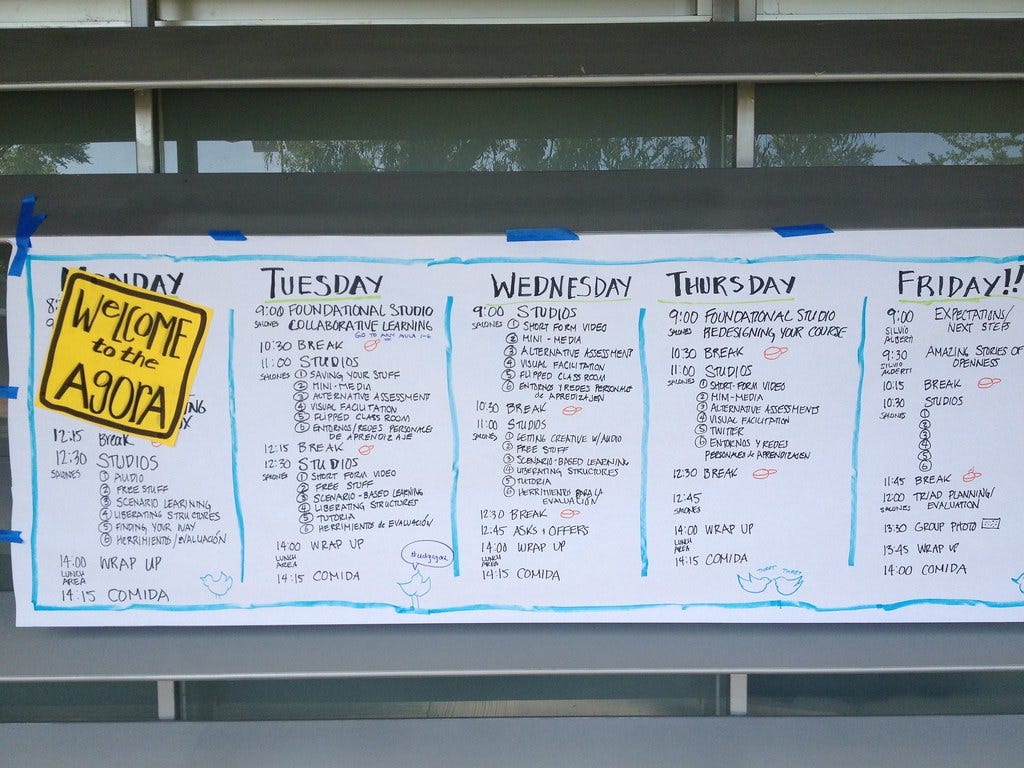 MONDAY
8:
9
WELCOME
to the
AGORA
12:15 Break
12:30 STUDIOS
SALONES
① AUDIO
② FREE STUFF
③ SCENARIO LEARNING
④ LIBERATING STRUCTURES
⑤ FINDING YOUR WAY
⑥ HERRIMIENTOS/EVALUACIÓN
14:00 WRAP UP
LUNCH
AREA
14:15 COMIDA
TUESDAY
9:00 FOUNDATIONAL STUDIO
SALONES COLLABORATIVE LEARNING
GO TO ANY AULA 1-6
10:30 BREAK
11:00 STUDIOS
SALONES ① SAVING YOUR STUFF
② MINI-MEDIA
③ ALTERNATIVE ASSESSMENT
④ VISUAL FACILITATION
⑤ FLIPPED CLASS ROOM
⑥ ENTORNOS/REDES PERSONALES
DE APRENDIZAJE
12:15 BREAK
12:30 STUDIOS
SALONES ① SHORT FORM VIDEO
② FREE STUFF
③ SCENARIO-BASED LEARNING
④ LIBERATING STRUCTURES
⑤ TUTORIA
⑥ HERRIMIENTOS de EVALUACIÓN
14:00 WRAP UP
LUNCH
AREA
14:15 COMIDA
#udgagora
WEDNESDAY
9:00 STUDIOS
SALONES ① SHORT FORM VIDEO
② MINI-MEDIA
③ ALTERNATIVE ASSESSMENT
④ VISUAL FACILITATION
⑤ FLIPPED CLASS ROOM
⑥ ENTORNOS Y REDES PERSONALES
de APREDIZAJEN
10:30 BREAK
11:00 STUDIOS
SALONES ① GETTING CREATIVE W/AUDIO
② FREE STUFF
③ SCENARIO-BASED LEARNING
④ LIBERATING STRUCTURES
⑤ TUTORIA
⑥ HERRIMIENTOS PARA LA
EVALUACIÓN
12:30 BREAK
12:45 ASKS + OFFERS
14:00 WRAP UP
LUNCH
AREA
14:15 COMIDA
THURSDAY
9:00 FOUNDATIONAL STUDIO
SALONES REDESIGNING YOUR COURSE
10:30 BREAK
11:00 STUDIOS
SALONES ① SHORT-FORM VIDEO
② MINI-MEDIA
③ ALTERNATIVE ASSESSMENTS
④ VISUAL FACILITATION
⑤ TWITTER
⑥ ENTORNOS Y REDES
PERSONALES de APRENDIZACION
12:30 BREAK
12:45
SALONES
14:00 WRAP UP
LUNCH
AREA
14:15 COMIDA
TWEET TWEET
FRIDAY!!
9:00 EXPECTATIONS/
SILVIO
ALBERTI
NEXT STEPS
9:30 AMAZING STORIES OF
SILVIO
ALBERTI
OPENNESS
10:15 BREAK
10:30 STUDIOS
SALONES ①
②
③
④
⑤
⑥
11:45 BREAK
12:00 TRIAD PLANNING/
SALONES EVALUATION
13:30 GROUP PHOTO
13:45 WRAP UP
14:00 COMIDA